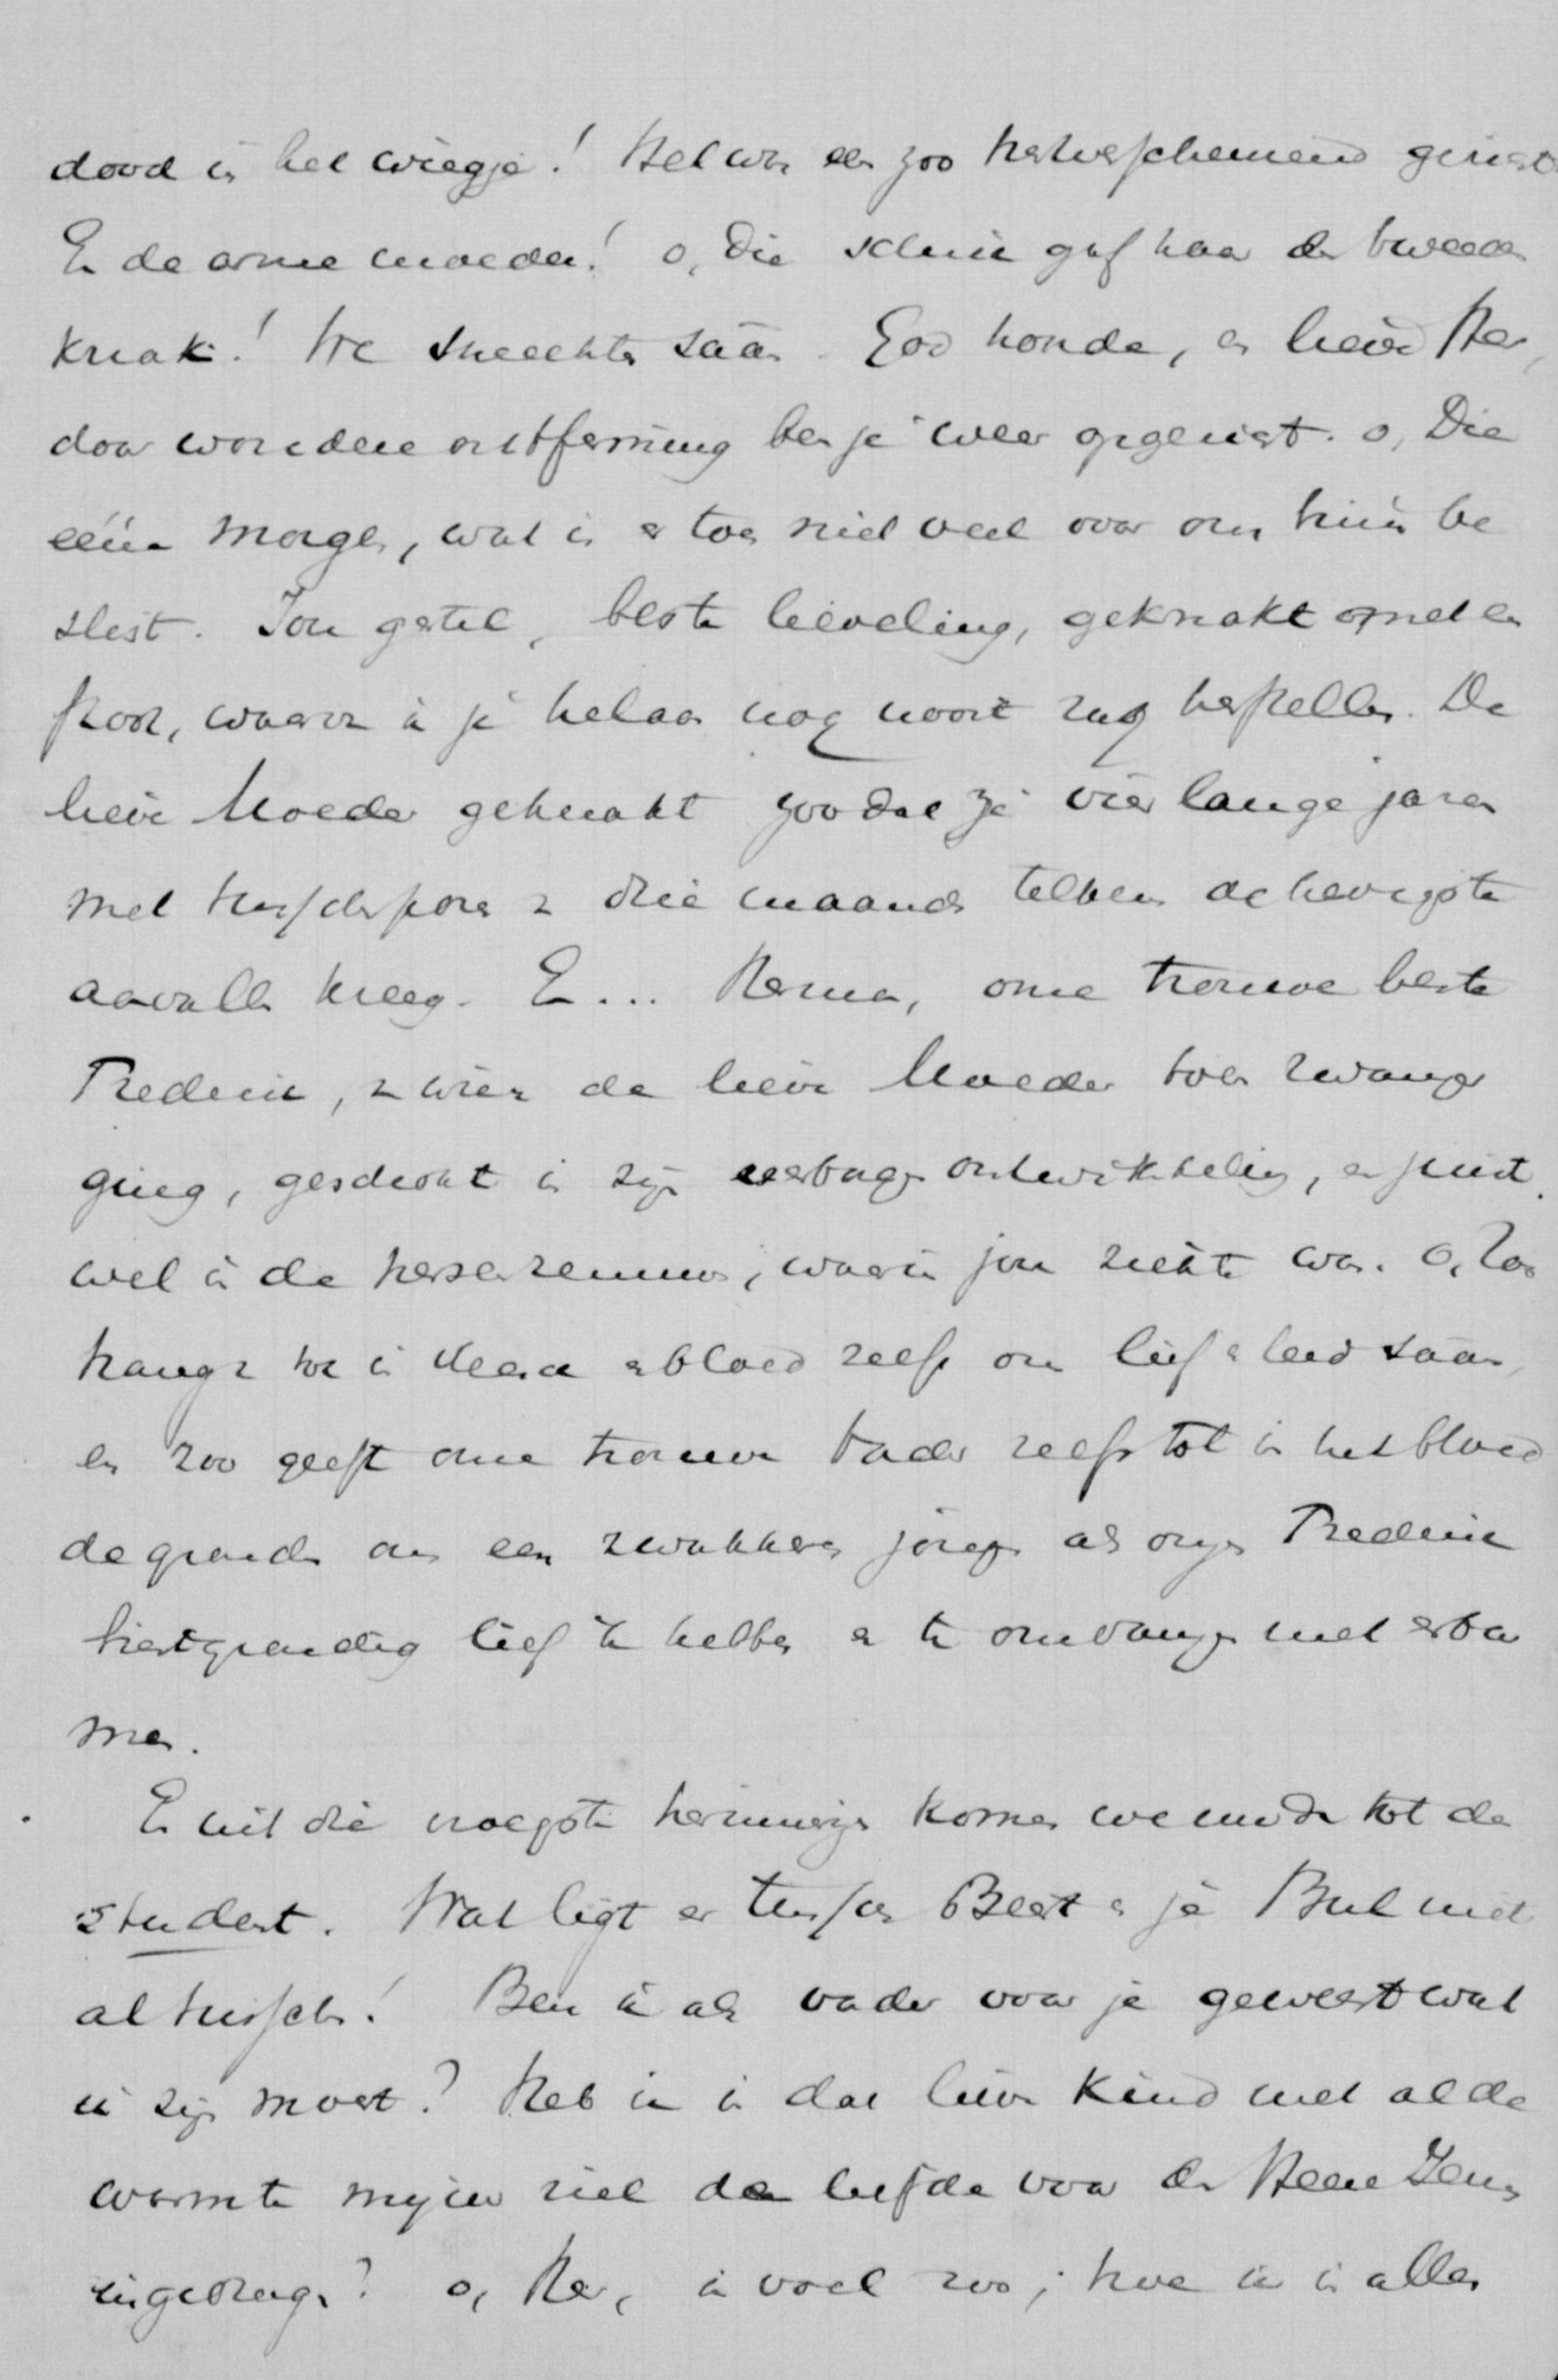 dood in het wiegje! Het was een zoo hartverscheurend gericht.
En de arme moeder! o, Die schrik gaf haar den tweeden
knak! We smeekten sààm God hoorde, en lieve Her,
door wondere ontferming ben je weer opgericht. o, Die
ééne morgen, wat is er toen niet veel over ons huis be
slist. Jou gestel, beste lieveling, geknakt met een
stoot, waarvan ik je helaas nog nooit zag herstellen. De
lieve Moeder geknakt zoodat ze vier lange jaren
met tusschenpoozen van drie maanden telkens de hevigste
aanvallen kreeg. En... Herman, onze trouwe beste
Frederik, van wien de lieve Moeder toen zwanger
ging, geschokt in zijn eerbage ontwikkeling, en juist
wel in de hersenzenuwen, waarin jou ziekte was. O, Zoo
hangen we in vleesch en bloed zelfs om lief en leed sààm,
en zoo geeft onze trouwe Vader zelfs tot in het bloed
de gronden om een zwakkeren jongen als onzen Frederik
hartgrondig lief te hebben en te omvangen met erbar
men.
En uit die vroegste herinneringen komen we nu tot den
student. Wat ligt er tusschen Beest en je Bul niet
al tusschen! Ben ik als vader voor je geweest wat
ik zijn moest? Heb ik in dat lieve kind met al de
warmte mijner ziel de liefde voor den Heere Jezus
ingedragen? o, Her, ik voel zoo, hoe ik in alles